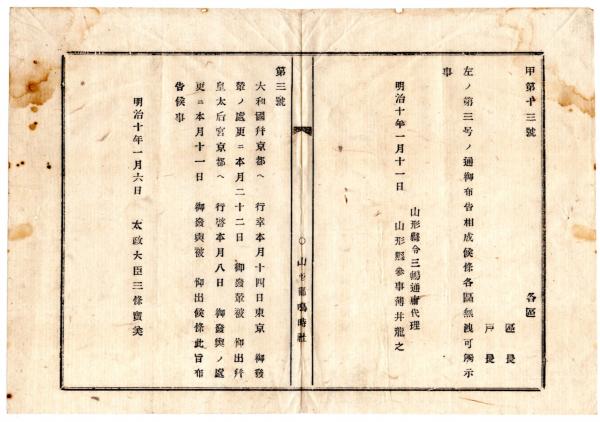 甲第十三號
各區
區長
戸長
左ノ第三号ノ通御布告相成候條各區無洩可觸示
事
明治十年一月十一日
山形縣令三嶋通庸代理
山形縣參事薄井龍之
〇山形
鳴時社
第三號
大和國幷京都ヘ 行幸本月十四日東京 御發
輦ノ處更ニ本月二十二日 御發輦被 仰出幷
皇太后宮京都ヘ 行啓本月八日 御發輿ノ處
更ニ本月十一日 御發輿被 仰出候條此旨布
告候事
明治十年一月六日 太政大臣三條實美